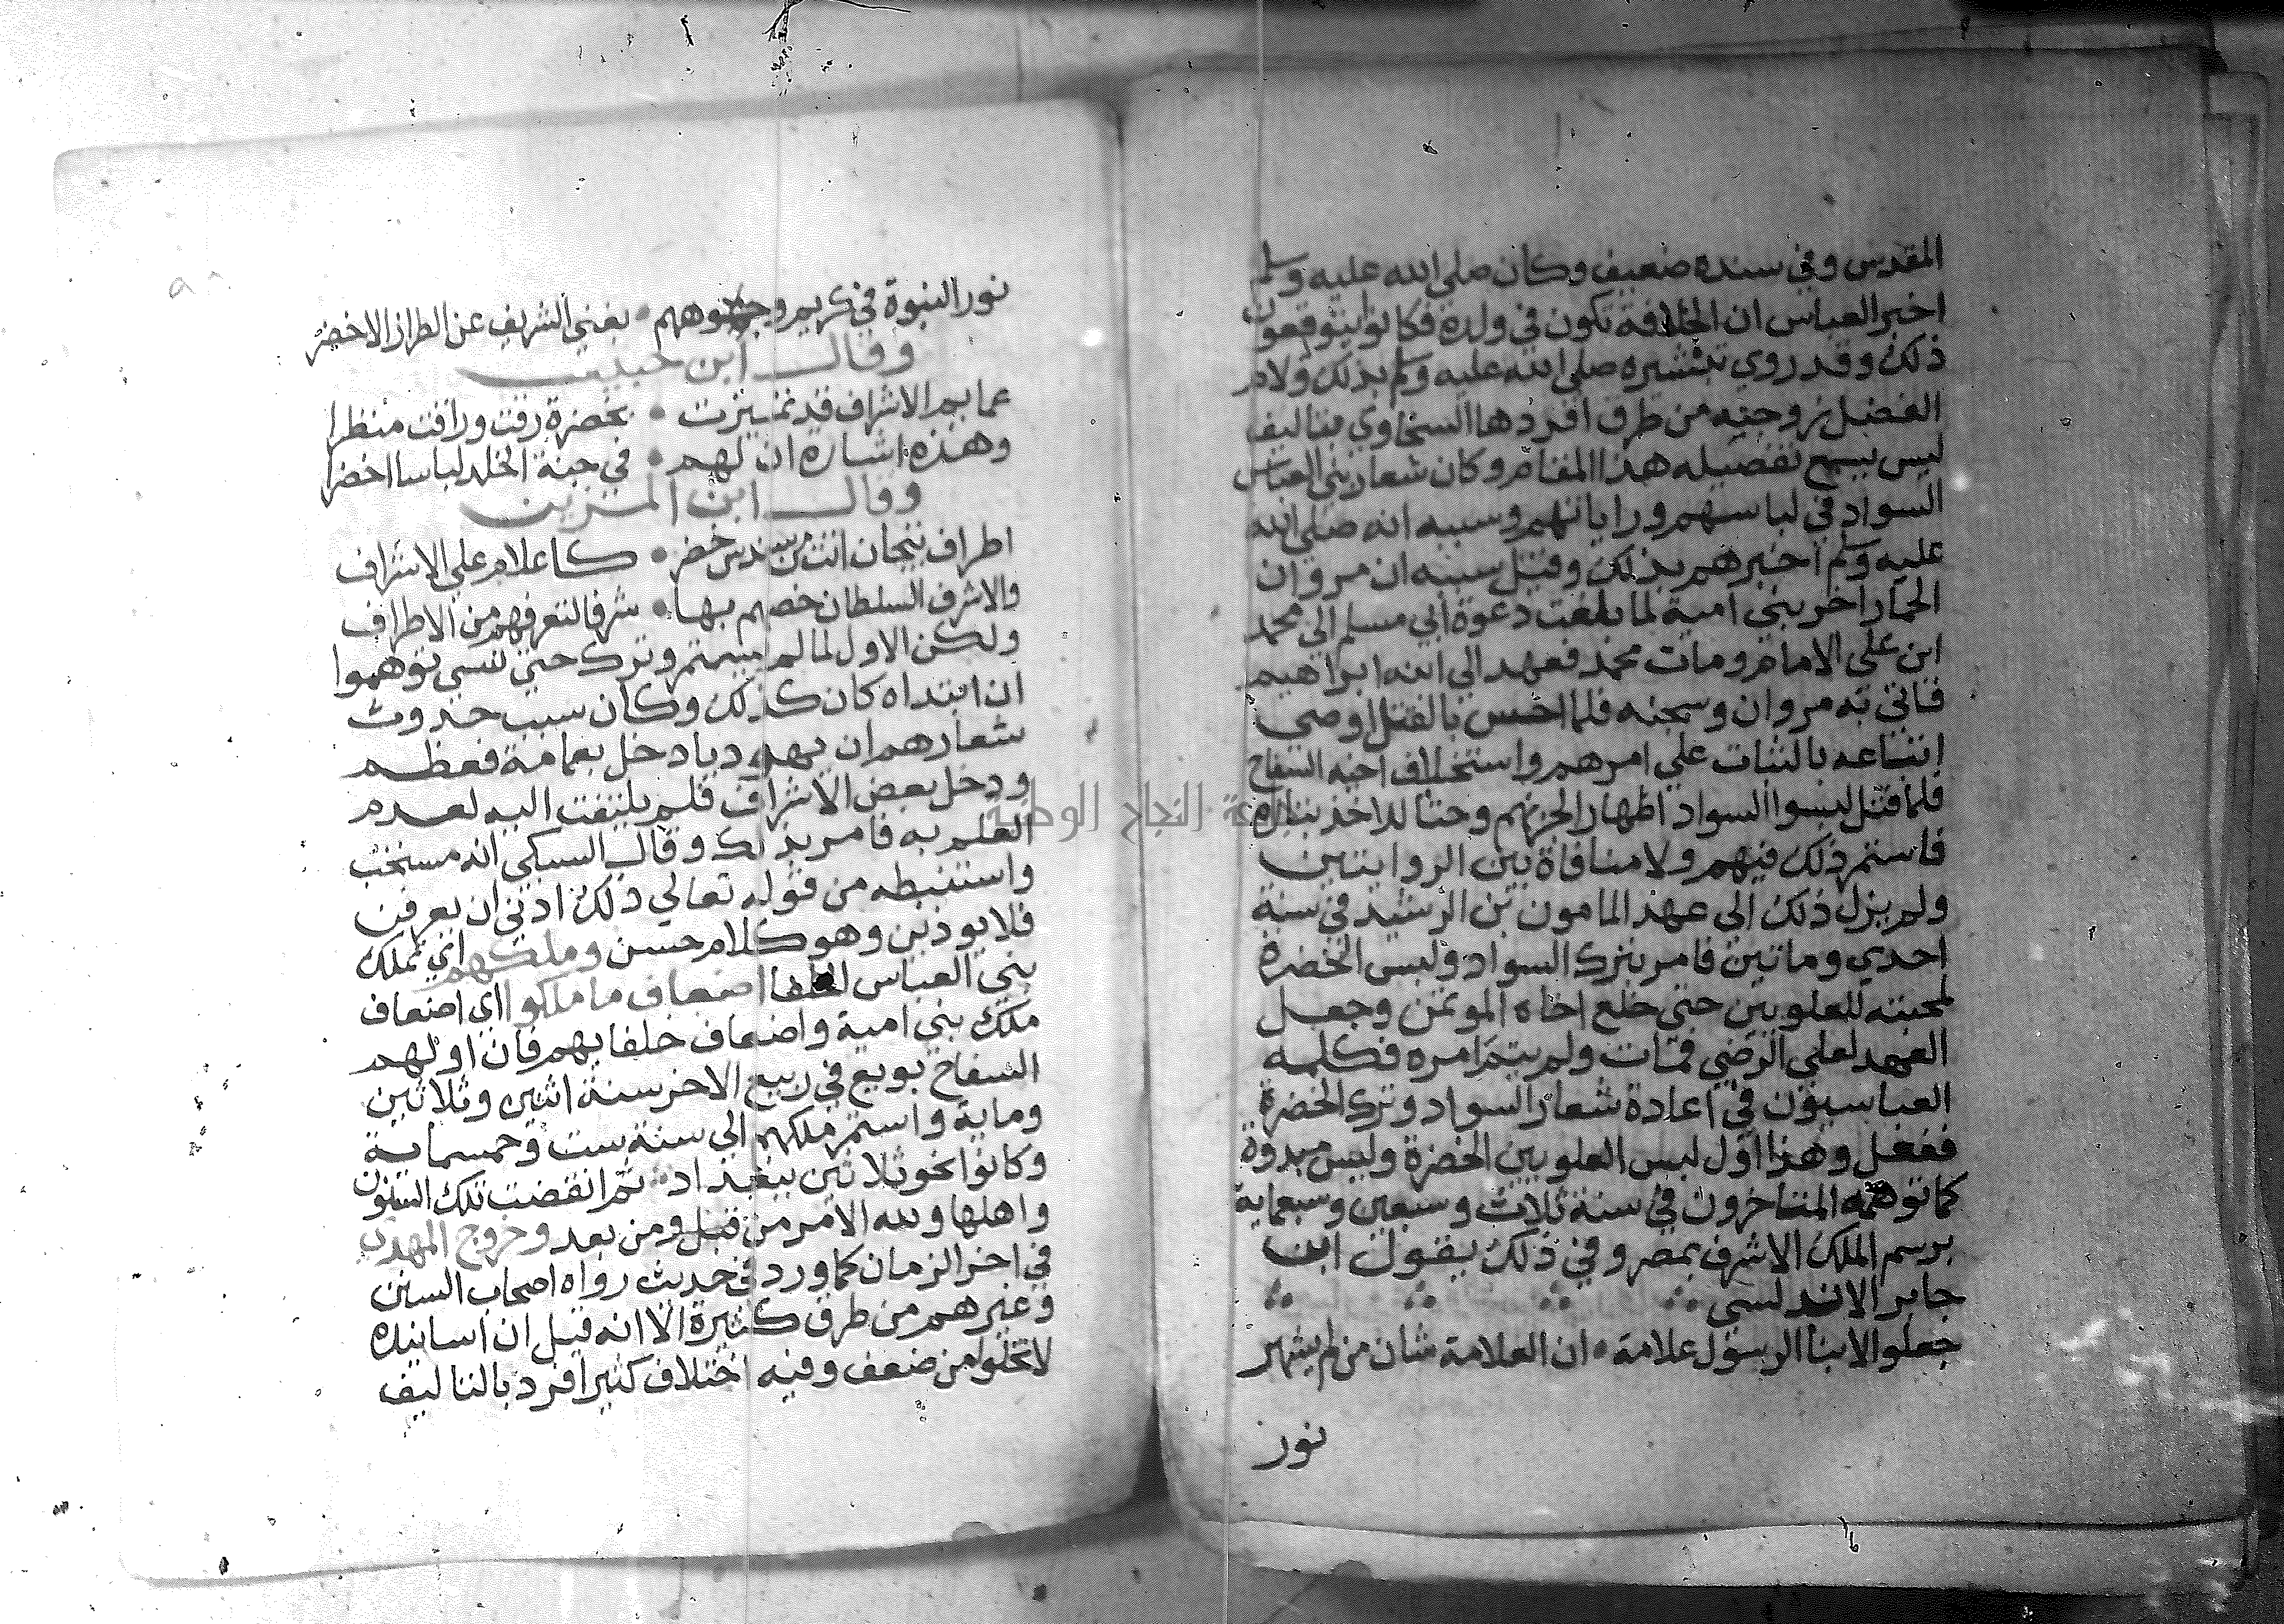 المقدس وفي سنده ضعيف وكان صلي الله عليه وسلم
اخبر العباس ان الخلافة تكون في ولده فكانوا يتوقعون
ذلك وقد روي تبشيره صلي الله عليه وسلم بذلك ولام
الفضل زوجته من طرق افردها السخاوي بتاليف
ليس يسع تفصيله هذا المقام وكان شعار بني العباس
السواد في لباسهم وراياتهم وسببه انه صلي الله
عليه وسلم اخبرهم بذلك وقيل سببه ان مروان
الحمار اخر بني امية لما بلغت دعوة ابي مسلم الي محمد
ابن علي الامام ومات محمد فعهد الي ابنه ابراهيم
فاتي به مروان وسجنه فلما احس بالقتل اوصي
اتباعه بالثبات علي امرهم واستخلاف اخيه السفاح
فلما قتل لبسوا السواد اظهارا لحزنهم وحتا لد اخذ بثاره
فاستمر ذلك فيهم ولا منافاة بين الروايتين
ولم يزل ذلك الي عهد المامون بن الرشيد في سنة
احدي وماتين فامر بترك السواد ولبس الخضرة
لمحبته للعلويين حتي خلع اخاه الموتمن وجعل
العهد لعلي الرضي فمات ولم يتم امره فكلمه
العباسيون في اعادة شعار السواد وترك الخضرة
ففعل وهذا اول لبس العلويين الخضرة وليس مبدوه
كما توهمه المتاخرون في سنة ثلاث وسبعين وسبعماية
برسم الملك الاشرف بمصر وفي ذلك يقول ابن
جابر الاندلسي
جعلوا لابنا الرسول علامة • ان العلامة شان من لم يشهر
نور
نور النبوة في كريم وجوههم • يغني الشريف عن الطراز الاخضر
وقال ابن حبيب
عمايم الاشراف قد تميزت • بخضرة رقت وراقت منظرا
وهذه اشارة ان لهم • في جنة الخلد لباسا اخضرا
وقال ابن المزين
اطراف تيجان اتت من سندس خضر • كاعلام علي الاشراف
والاشرف السلطان خصهم بها • شرفا لتعرفهم من الاطراف
ولكن الاول لما لم يستمر وترك حتي نسي توهموا
ان ابتداه كان كذلك وكان سبب حدوث
شعارهم ان يهوديا دخل بعمامة فعظم
ودخل بعض الاشراف فلم يلتفت اليه لعدم
العلم به فامر بذلك وقال السبكي انه مستحب
واستنبطه من قوله تعالي ذلك ادني ان يعرفن
فلا يوذين وهو كلام حسن وملكهم اي تملك
بني العباس الخلفا اضعاف ما ملكوا اي اضعاف
ملك بني امية واضعاف خلفايهم فان اولهم
السفاح بويع في ربيع الاخر سنة اثنين وثلاثين
وماية واستمر ملكهم الي سنة ست وخمسماية
وكانوا نحو ثلاثين ببغداد ثم انقضت تلك السنون
واهلها ولله الامر من قبل ومن بعد وخروج المهدي
في اخر الزمان كما ورد في حديث رواه اصحاب السنن
وغيرهم من طرق كثيرة الا انه قيل ان اسانيده
لا تخلوا من ضعف وفيه اختلاف كثير افرد بالتاليف
جامعة النجاح الوطنية